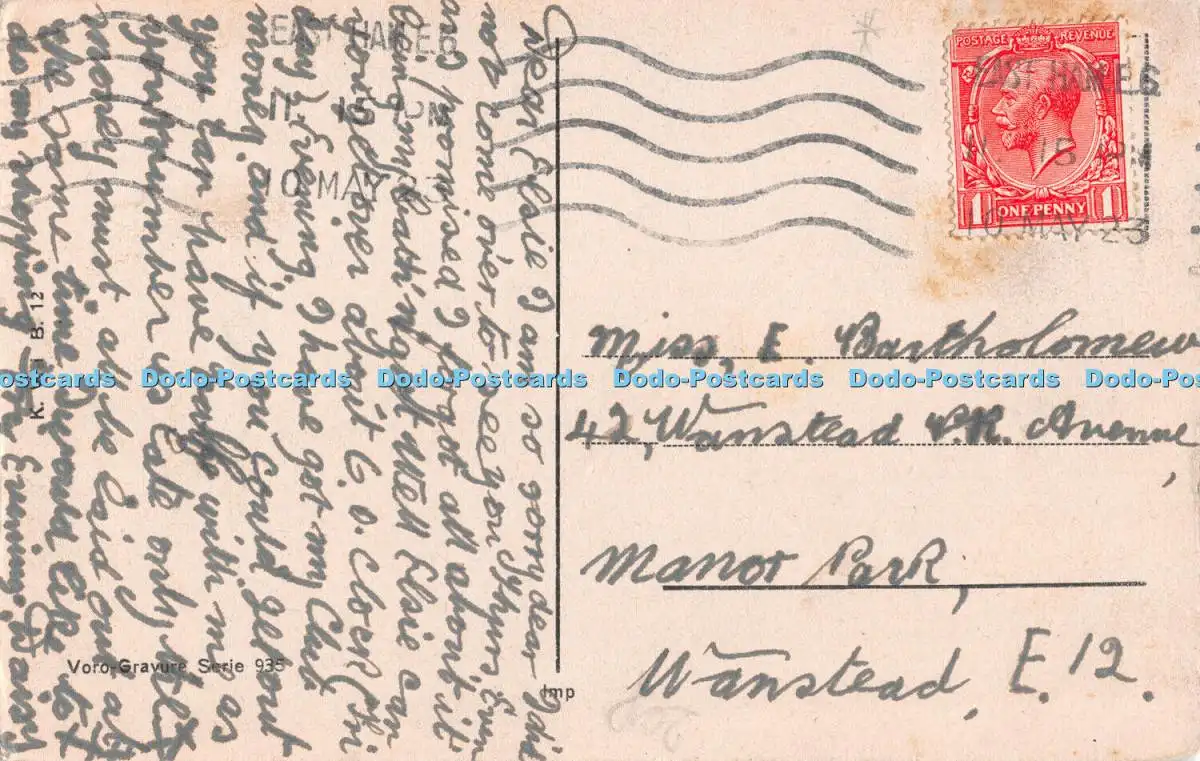 EAST HAM E.6
11.15 PM
10 MAY 23
POSTAGE REVENUE
1 ONE PENNY 1
EAST HAM E.6
10 MAY 23
Dear Elsie I am so sorry dear I did
not come over to see you Thurs, Even
and promised I forgot all about it
being my bath night Well Elsie can
you get over about 6.0. Clock Fri-
day Evening. I have got my Club
money and if you could get out
you can have with me as
remember us Late only the
money must all be laid out at
the same time I would like to
do my shopping in Evening. Daisy
Miss, E. Bartholomew
42, Wanstead P.K. Avenue,
Manor Park,
Wanstead, E.12.
K. I B. 12
Voro-Gravure Serie 935
Imp
Dodo-Postcards Dodo-Postcards Dodo-Postcards Dodo-Postcards Dodo-Postcards